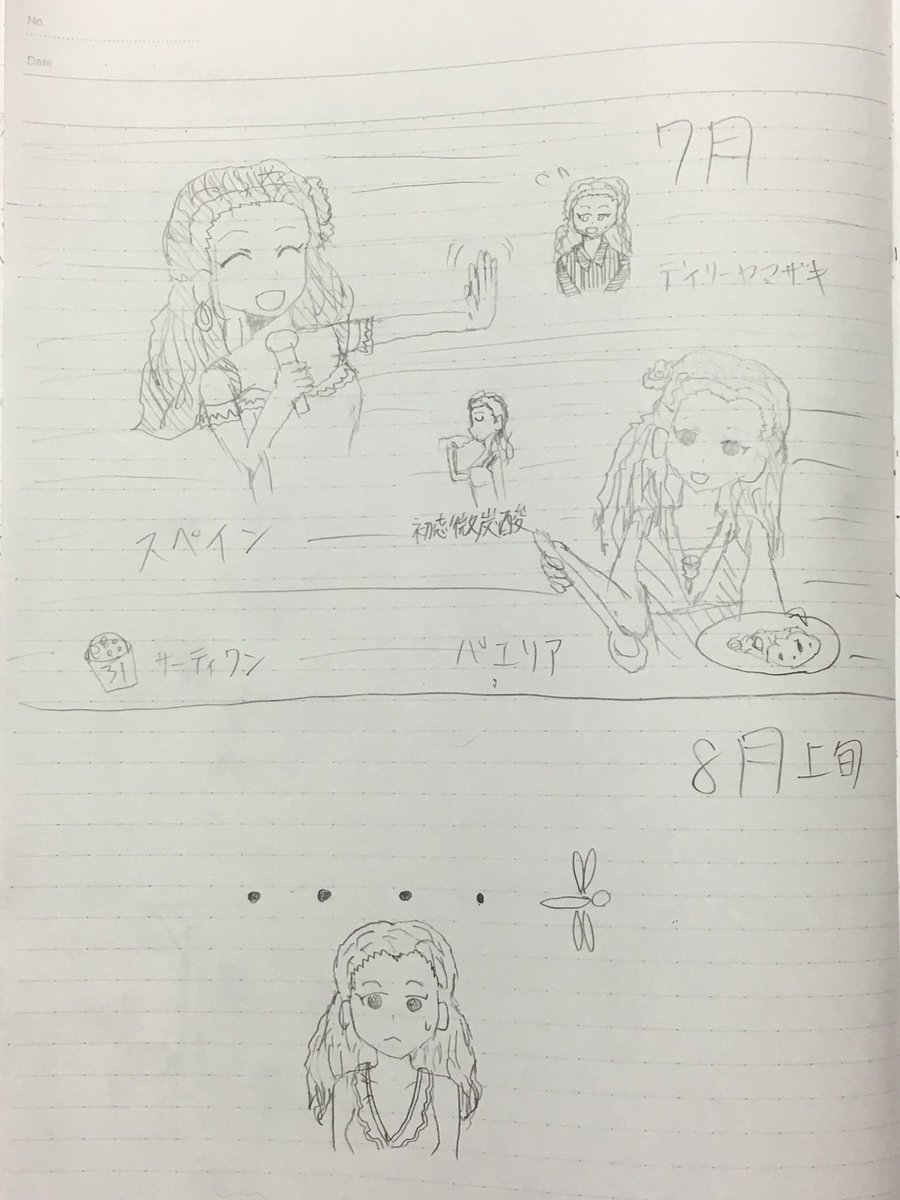 No.
Date
7月
デイリーヤマザキ
スペイン
初恋微炭酸
31
サーティワン
パエリア
8月上旬